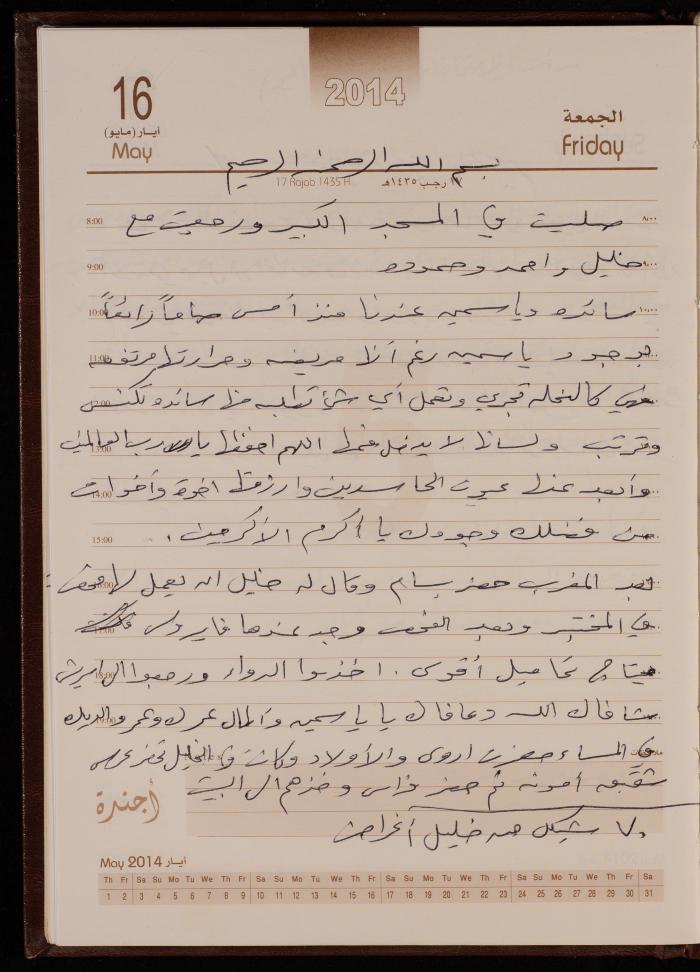 2014
16
أيار (مايو)
May
الجمعة
Friday
بسم الله الرحمن الرحيم
17 Rajab 1435 H
١٧ رجب ١٤٣٥هـ
8:00 صليت في المسجد الكبير ورجعت مع ٨,٠٠
9:00 خليل واحمد وحموده
10:00 سائده وياسمين عندنا منذ أمس صباحاً رائعاً ١٠,٠٠
11:00 بوجود ياسمين رغم أنها مريضه وحرارتها مرتفعه
12:00 فهي كالنحله تجري وتعمل أي شئ تطلبه منها سائده تكنس
13:00 وترتب ولسانها لا يدخل فمها اللهم احفظها يا رب العالمين
14:00 وأبعد عنها عيون الحاسدين وارزقها اخوة وأخوات
15:00 من فضلك وجودك يا أكرم الأكرمين .
بعد المغرب حضر بسام وقال له خليل انه يعمل لها فحص
17:00 في المختبر وبعد الفحص وجد عندها فايروس
18:00 تحتاج تحاميل أقوى . اخذوا الدواء ورجعوا
19:00 شافاك الله وعافاك يا ياسمين وأطال عمرك وعمر والديك
في المساء حضرت اروى والأولاد وكانت في الخليل تحضر عرس
شقيقه أمونه ثم حضر فراس وأخذهم الى البيت
٧٠ شيكل من خليل أغراض
أجندة
May 2014 أيار
Th Fr Sa Su Mo Tu We Th Fr Sa Su Mo Tu We Th Fr Sa Su Mo Tu We Th Fr Sa Su Mo Tu We Th Fr Sa
1 2 3 4 5 6 7 8 9 10 11 12 13 14 15 16 17 18 19 20 21 22 23 24 25 26 27 28 29 30 31